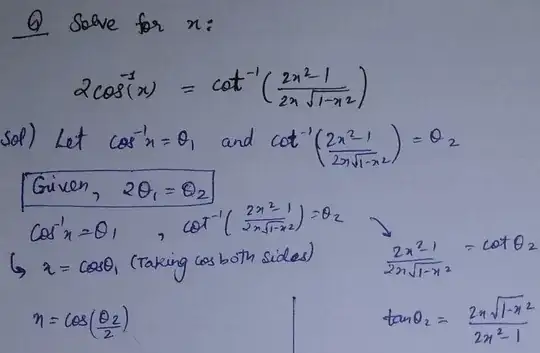 Q Solve for x:
2cos⁻¹(x) = cot⁻¹(2x²-1 / 2x√1-x²)
Sol) Let cos⁻¹x = θ₁ and cot⁻¹(2x²-1 / 2x√1-x²) = θ₂
Given, 2θ₁ = θ₂
cos⁻¹x = θ₁ , cot⁻¹(2x²-1 / 2x√1-x²) = θ₂
↳ x = cosθ₁ (Taking cos both sides)
2x²-1 / 2x√1-x² = cotθ₂
x = cos(θ₂/2)
tanθ₂ = 2x√1-x² / 2x²-1